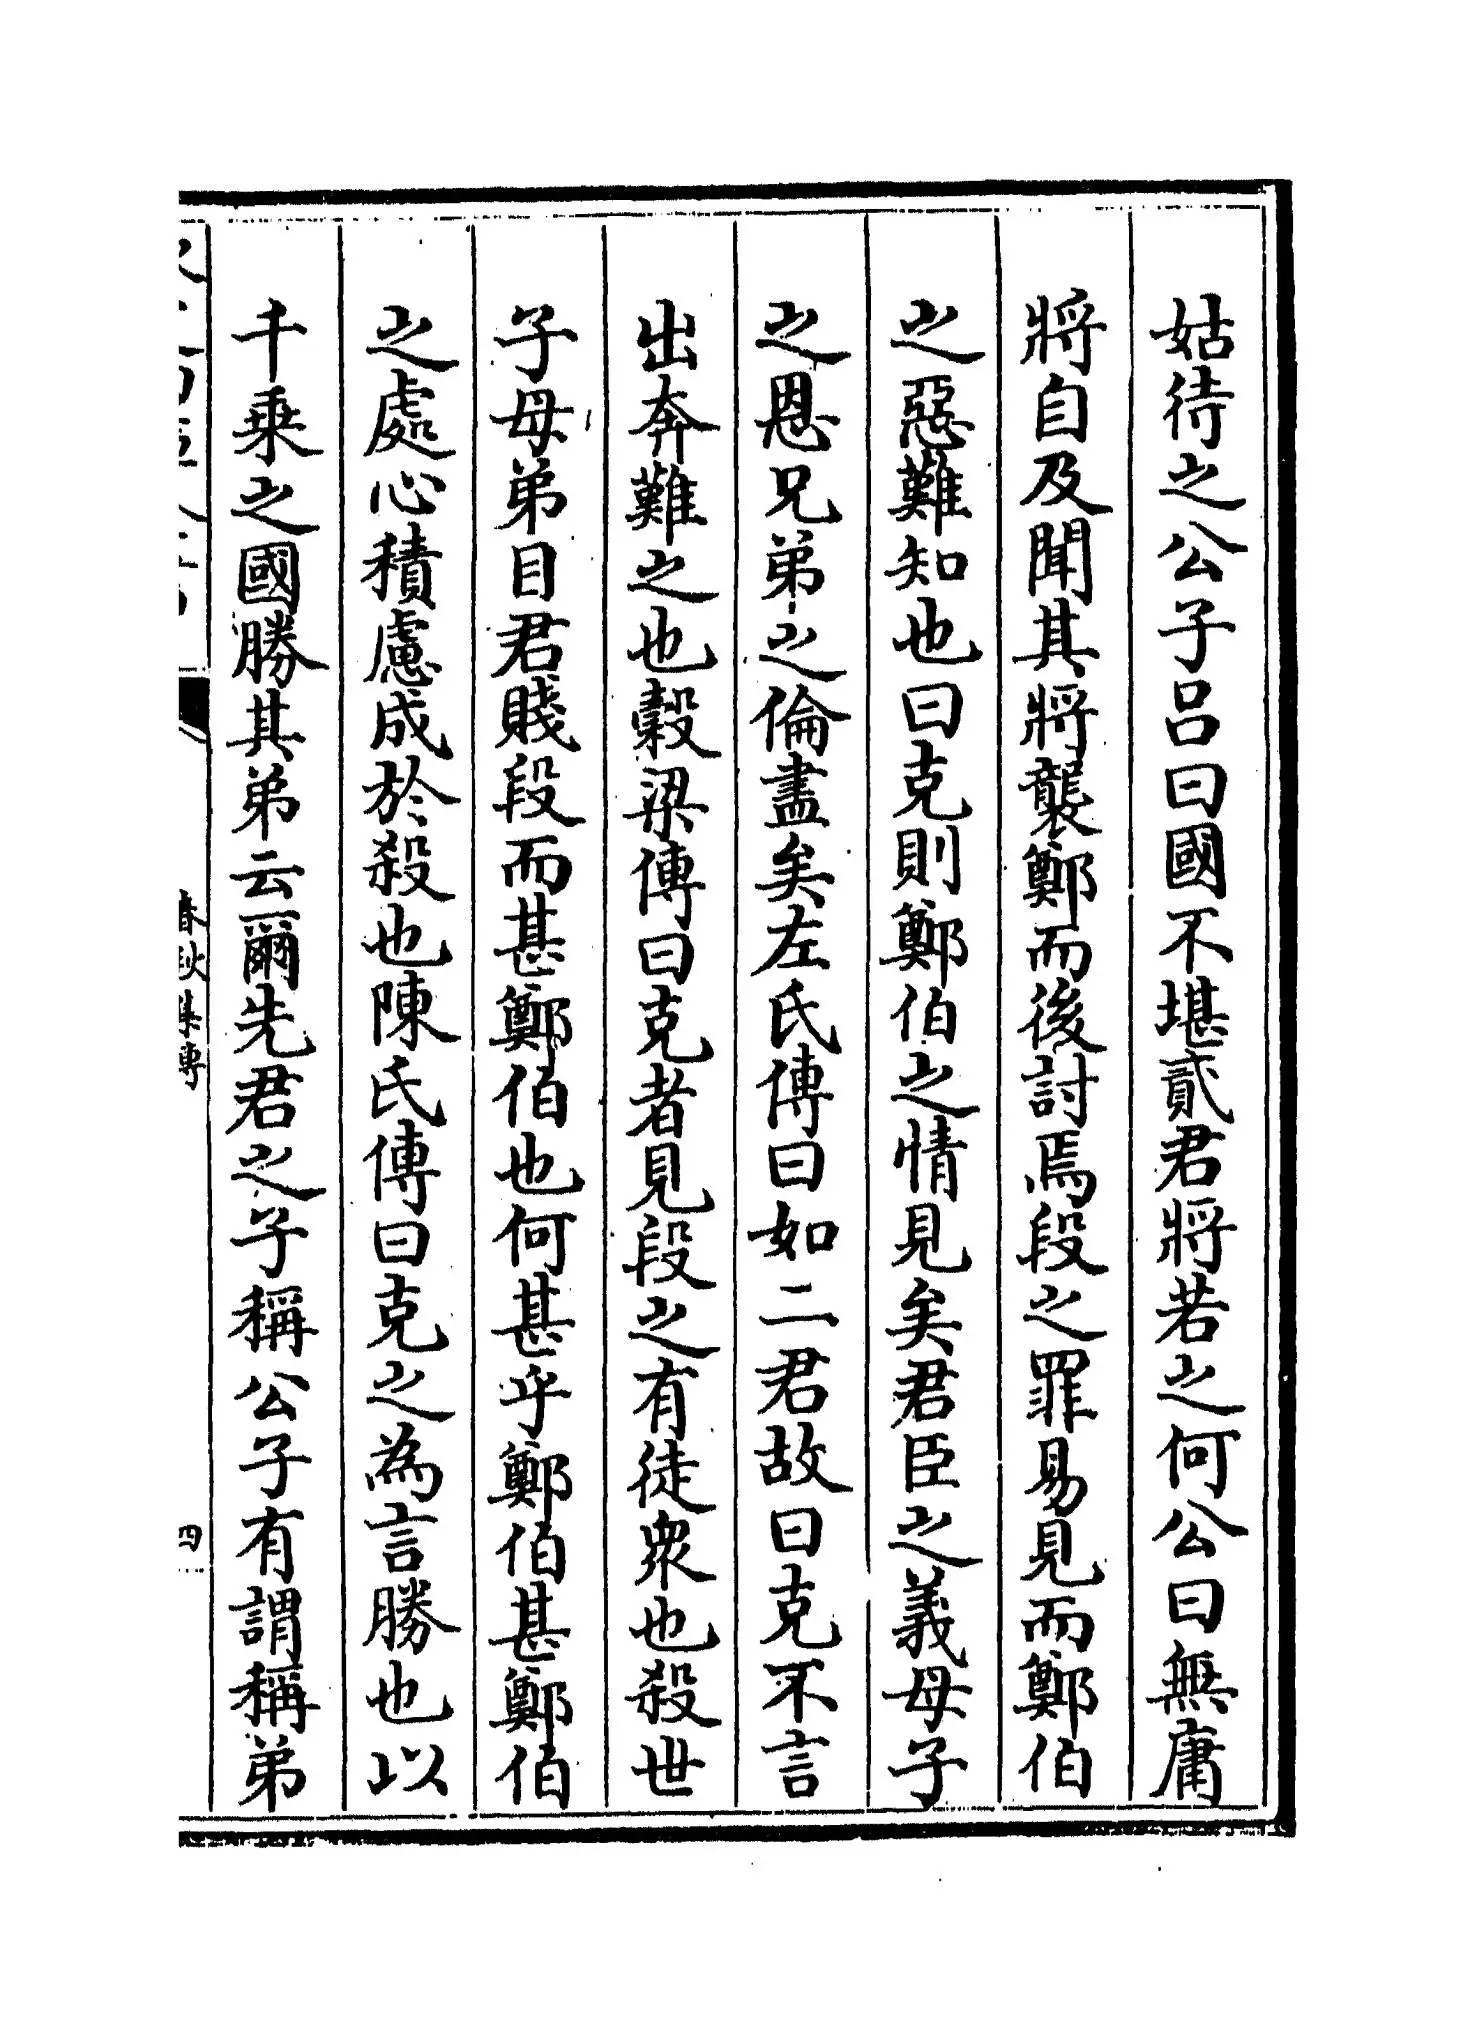 姑待之公子呂曰國不堪貳君將若之何公曰無庸
將自及聞其將襲鄭而後討焉段之罪易見而鄭伯
之惡難知也曰克則鄭伯之情見矣君臣之義母子
之恩兄弟之倫盡矣左氏傳曰如二君故曰克不言
出奔難之也穀梁傳曰克者見段之有徒衆也殺世
子母弟目君賤段而甚鄭伯也何甚乎鄭伯甚鄭伯
之處心積慮成於殺也陳氏傳曰克之為言勝也以
千乘之國勝其弟云爾先君之子稱公子有謂稱弟
春秋集傳
四